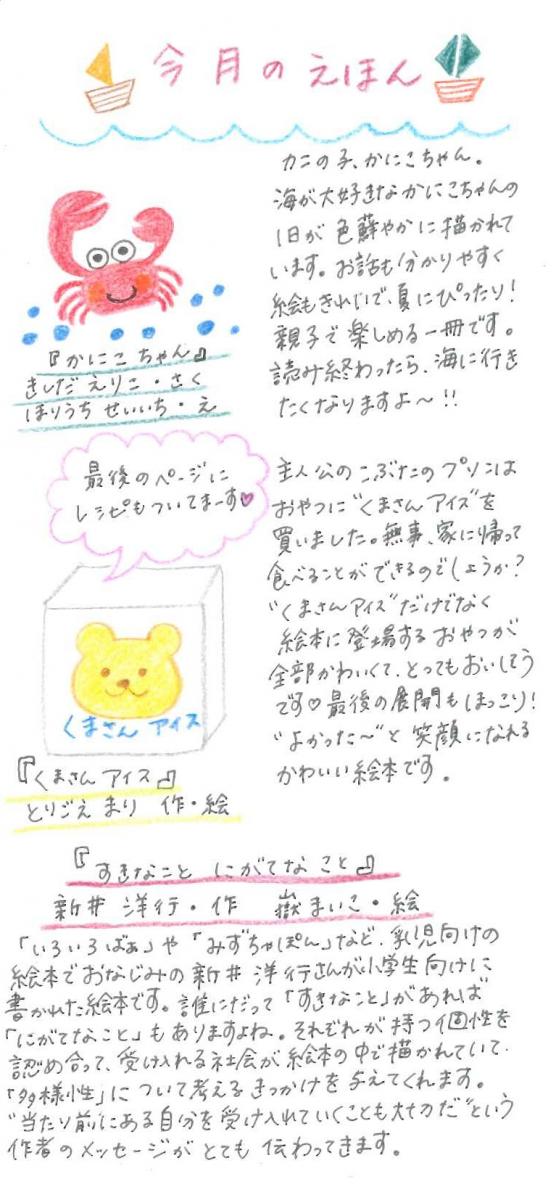 今月のえほん
カニの子、かにこちゃん。
海が大好きなかにこちゃんの
1日が色鮮やかに描かれて
います。お話も分かりやすく
絵もきれいで、夏にぴったり!
親子で楽しめる一冊です。
読み終わったら、海に行き
たくなりますよ〜!!
『かにこちゃん』
きしだ えりこ・さく
ほりうち せいいち・え
最後のページに
レシピもついてまーす♥
主人公のこぶたのプリンは
おやつに"くまさんアイス"を
買いました。無事、家に帰って
食べることができるのでしょうか?
"くまさんアイス"だけでなく
絵本に登場するおやつが
全部かわいくて、とってもおいしそう
です♡最後の展開もほっこり!
"よかった〜"と笑顔になれる
かわいい絵本です。
くまさん アイス
『くまさん アイス』
とりごえ まり 作・絵
『すきなこと にがてなこと』
新井 洋行・作 嶽まいこ・絵
「いろいろばあ」や「みずちゃぽん」など、乳児向けの
絵本でおなじみの新井 洋行さんが小学生向けに
書かれた絵本です。誰にだって「すきなこと」があれば
「にがてなこと」もありますよね。それぞれが持つ個性を
認め合って、受け入れる社会が絵本の中で描かれていて、
「多様性」について考えるきっかけを与えてくれます。
"当たり前にある自分を受け入れていくことも大切だ"という
作者のメッセージがとても伝わってきます。